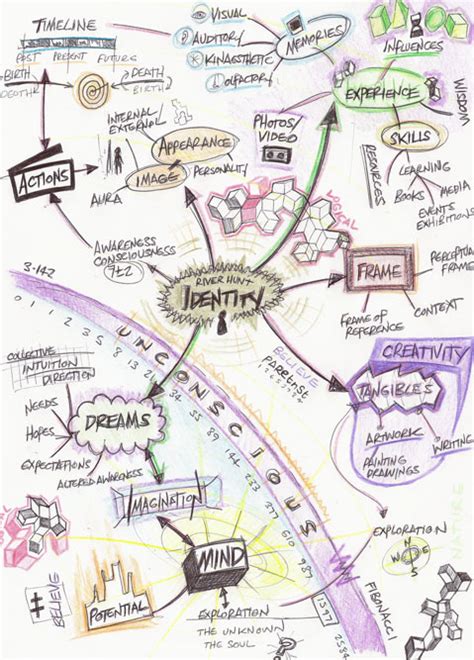 TIMELINE
PAST PRESENT FUTURE
BIRTH
DEATH
DEATH
BIRTH
VISUAL
AUDITORY
KINAESTHETIC
OLFACTORY
MEMORIES
INFLUENCES
EXPERIENCE
WISDOM
SKILLS
RESOURCES
LEARNING
BOOKS
MEDIA
EVENTS
EXHIBITIONS
PHOTOS/
VIDEO
INTERNAL/
EXTERNAL
APPEARANCE
IMAGE
PERSONALITY
AURA
ACTIONS
AWARENESS
CONSCIOUSNESS
7±2
LOGICAL
RIVER HUNT
IDENTITY
FRAME
PERCEPTION
FRAME
CONTEXT
FRAME OF
REFERENCE
3.142
0 1 1 2 3 5 8 13 21 34 55 89 144 233 377 610 987 1597 2584
UNCONSCIOUS
BELIEVE
CREATIVITY
TANGIBLES
ARTWORK
WRITING
PAINTING
DRAWINGS
COLLECTIVE
INTUITION
DIRECTION
NEEDS
HOPES
EXPECTATIONS
DREAMS
ALTERED AWARENESS
IMAGINATION
MIND
POTENTIAL
BELIEVE
EXPLORATION
THE UNKNOWN
THE SOUL
EXPLORATION
N
W E
S
NATURE
FIBONACCI